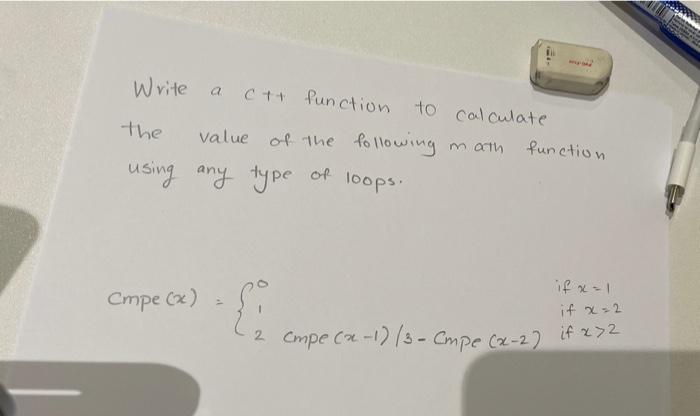 Write a c++ function to calculate
the value of the following math function
using any type of loops.
0 if x=1
Cmpe(x) = { 1 if x=2
2 Cmpe(x-1)/3 - Cmpe(x-2) if x>2